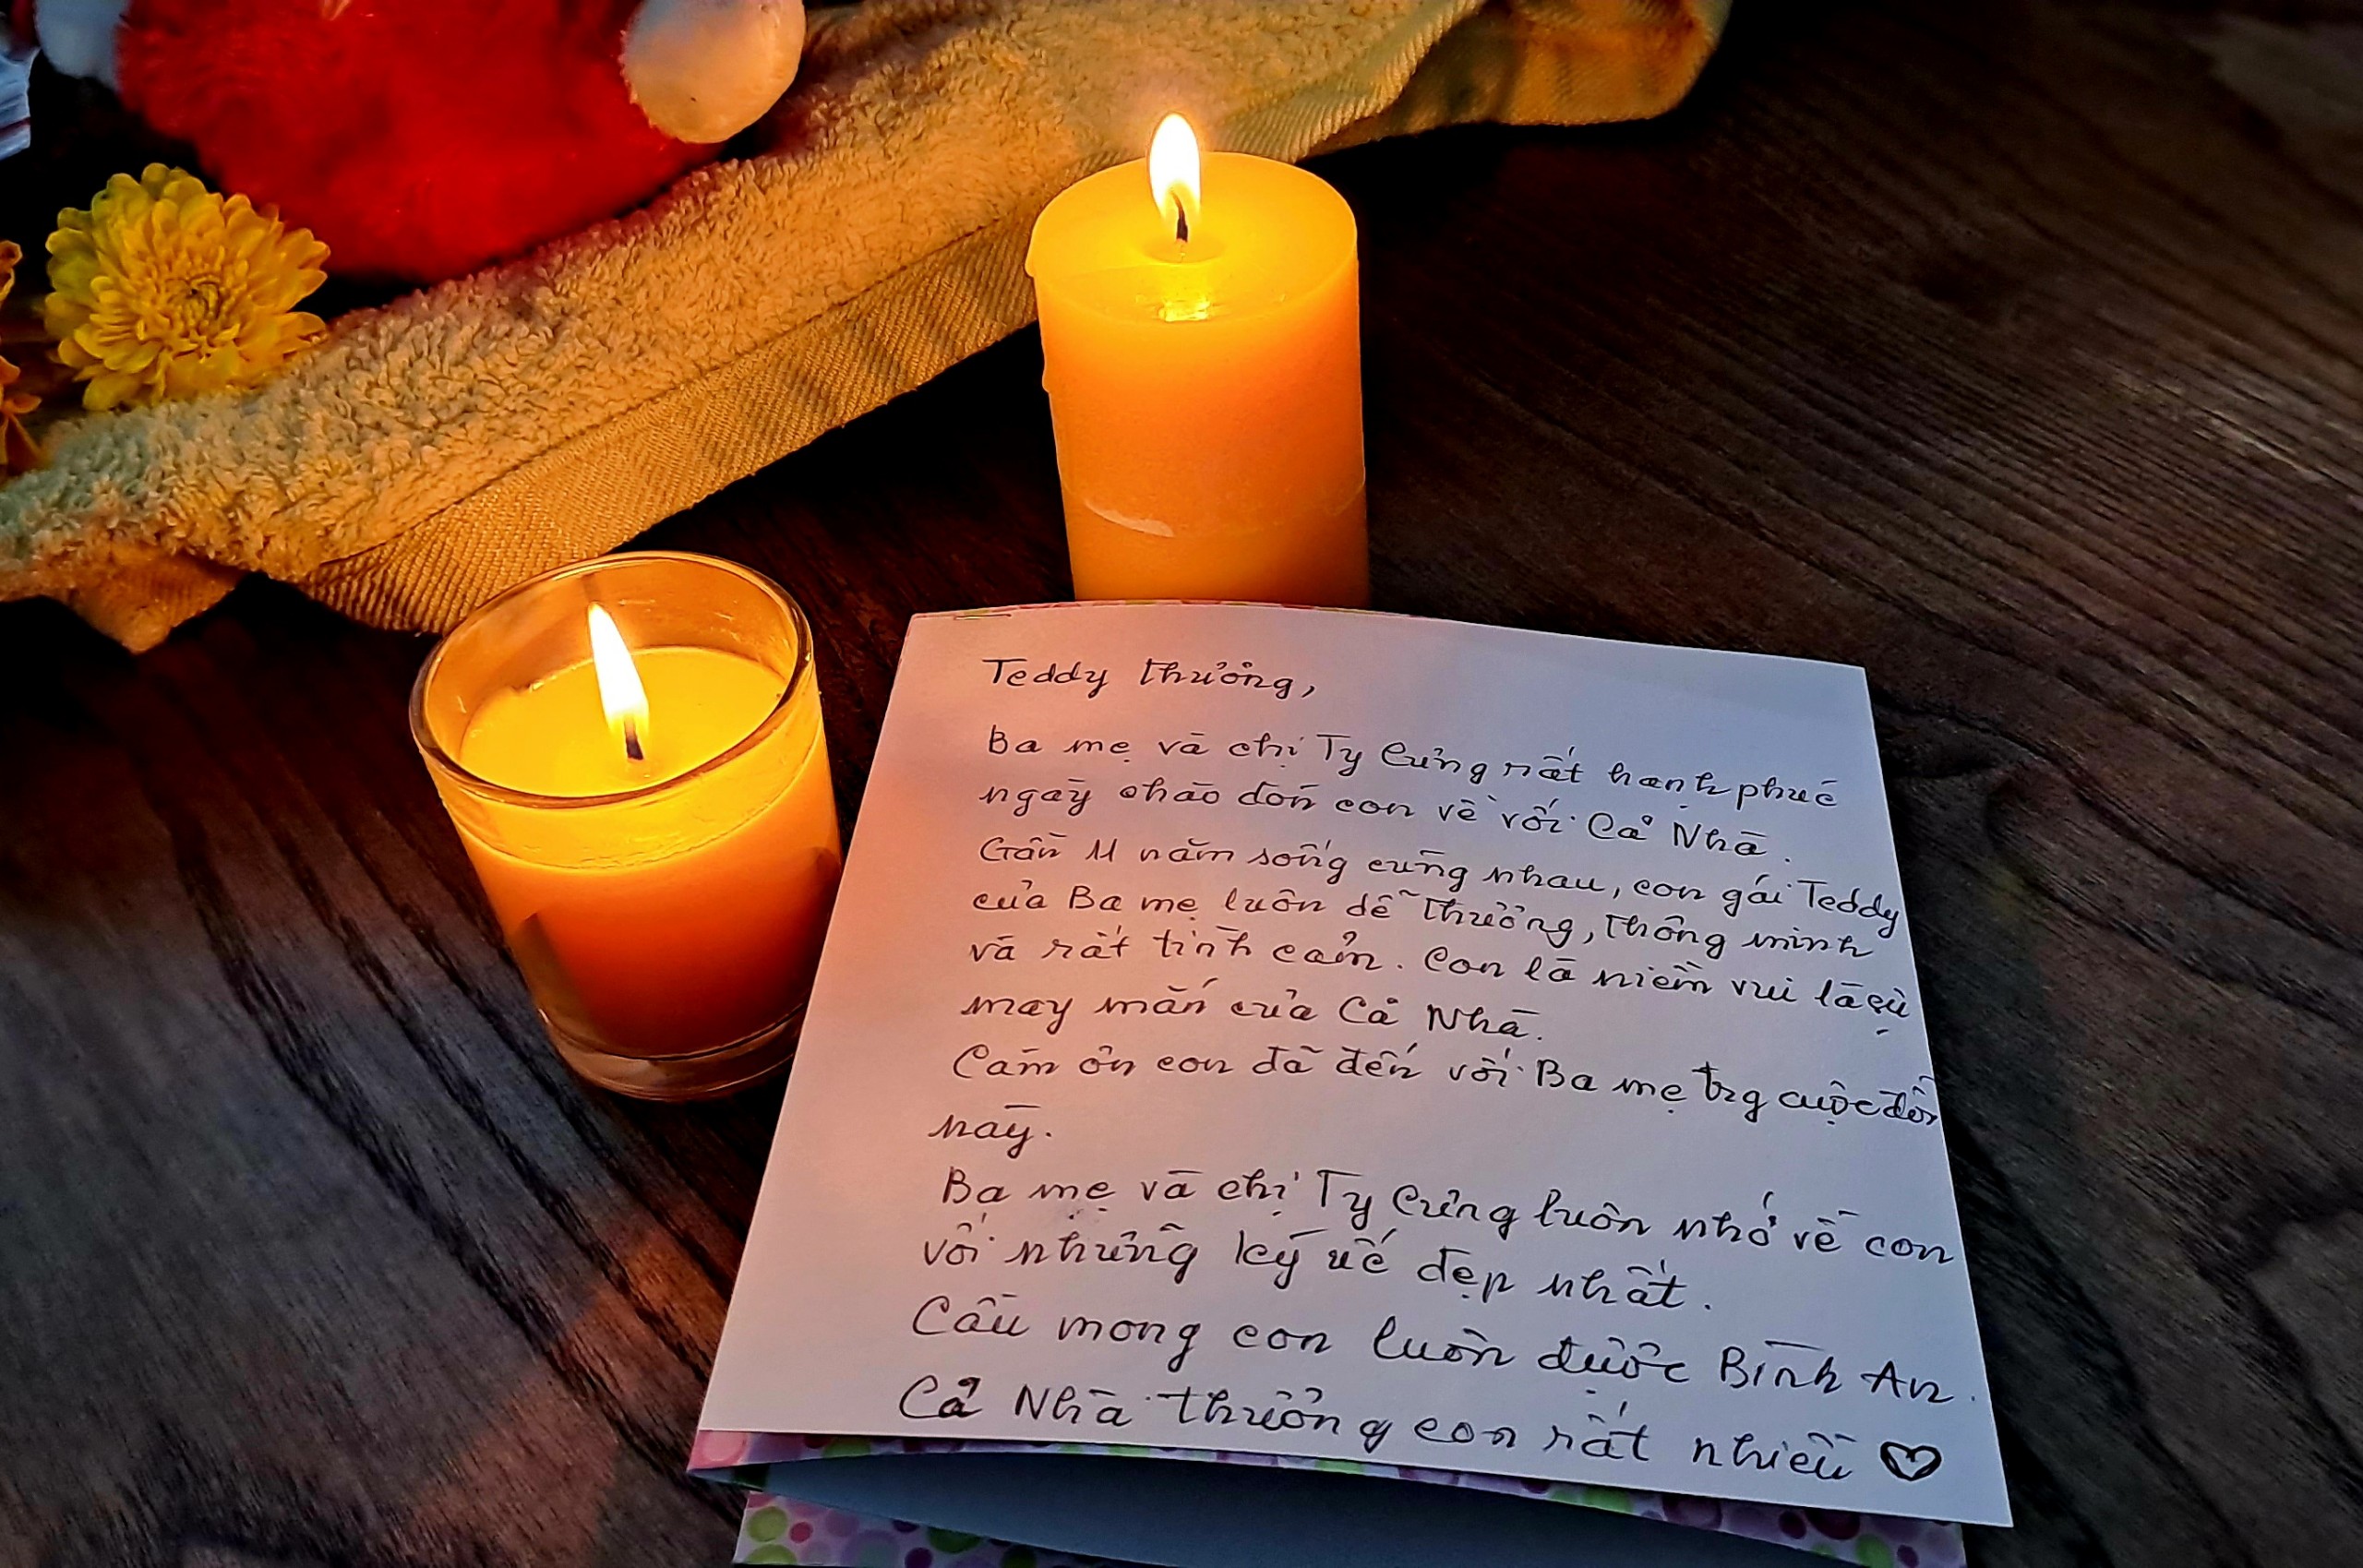 Teddy thương,
Ba mẹ và chị Ty Cưng rất hạnh phúc
ngày chào đón con về với Cả Nhà.
Gần 11 năm sống cùng nhau, con gái Teddy
của Ba mẹ luôn dễ thương, thông minh
và rất tình cảm. Con là niềm vui là sự
may mắn của Cả Nhà.
Cám ơn con đã đến với Ba mẹ trg cuộc đời
này.
Ba mẹ và chị Ty Cưng luôn nhớ về con
với những ký ức đẹp nhất.
Cầu mong con luôn được Bình An.
Cả Nhà thương con rất nhiều ♡